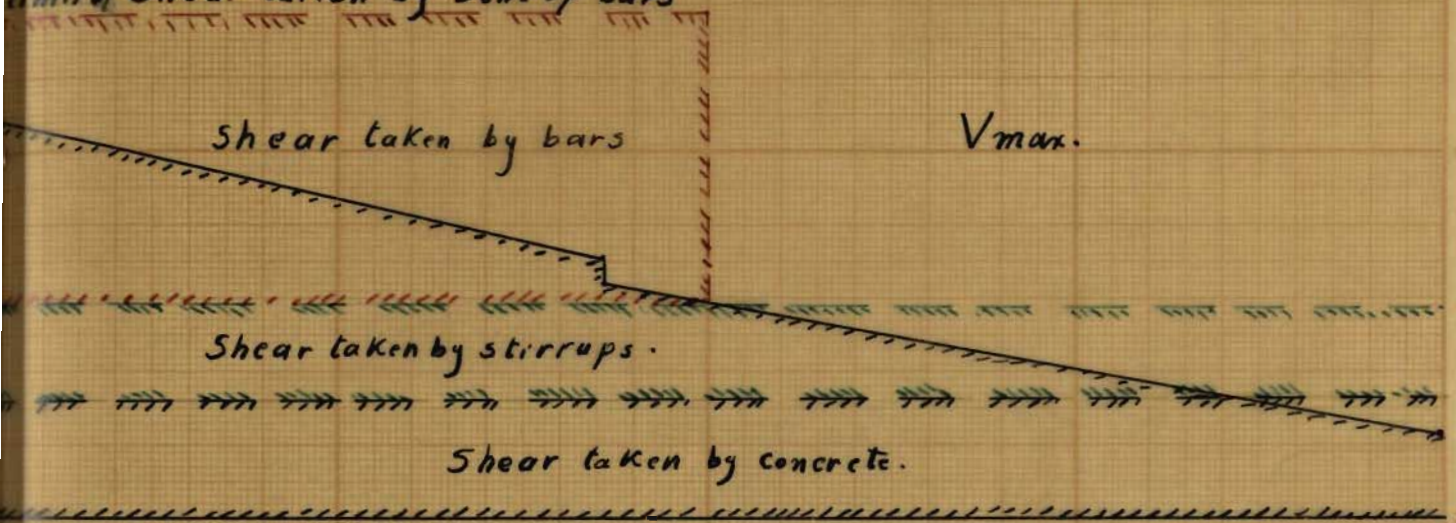 Shear taken by bars
Vmax.
Shear taken by stirrups.
Shear taken by concrete.